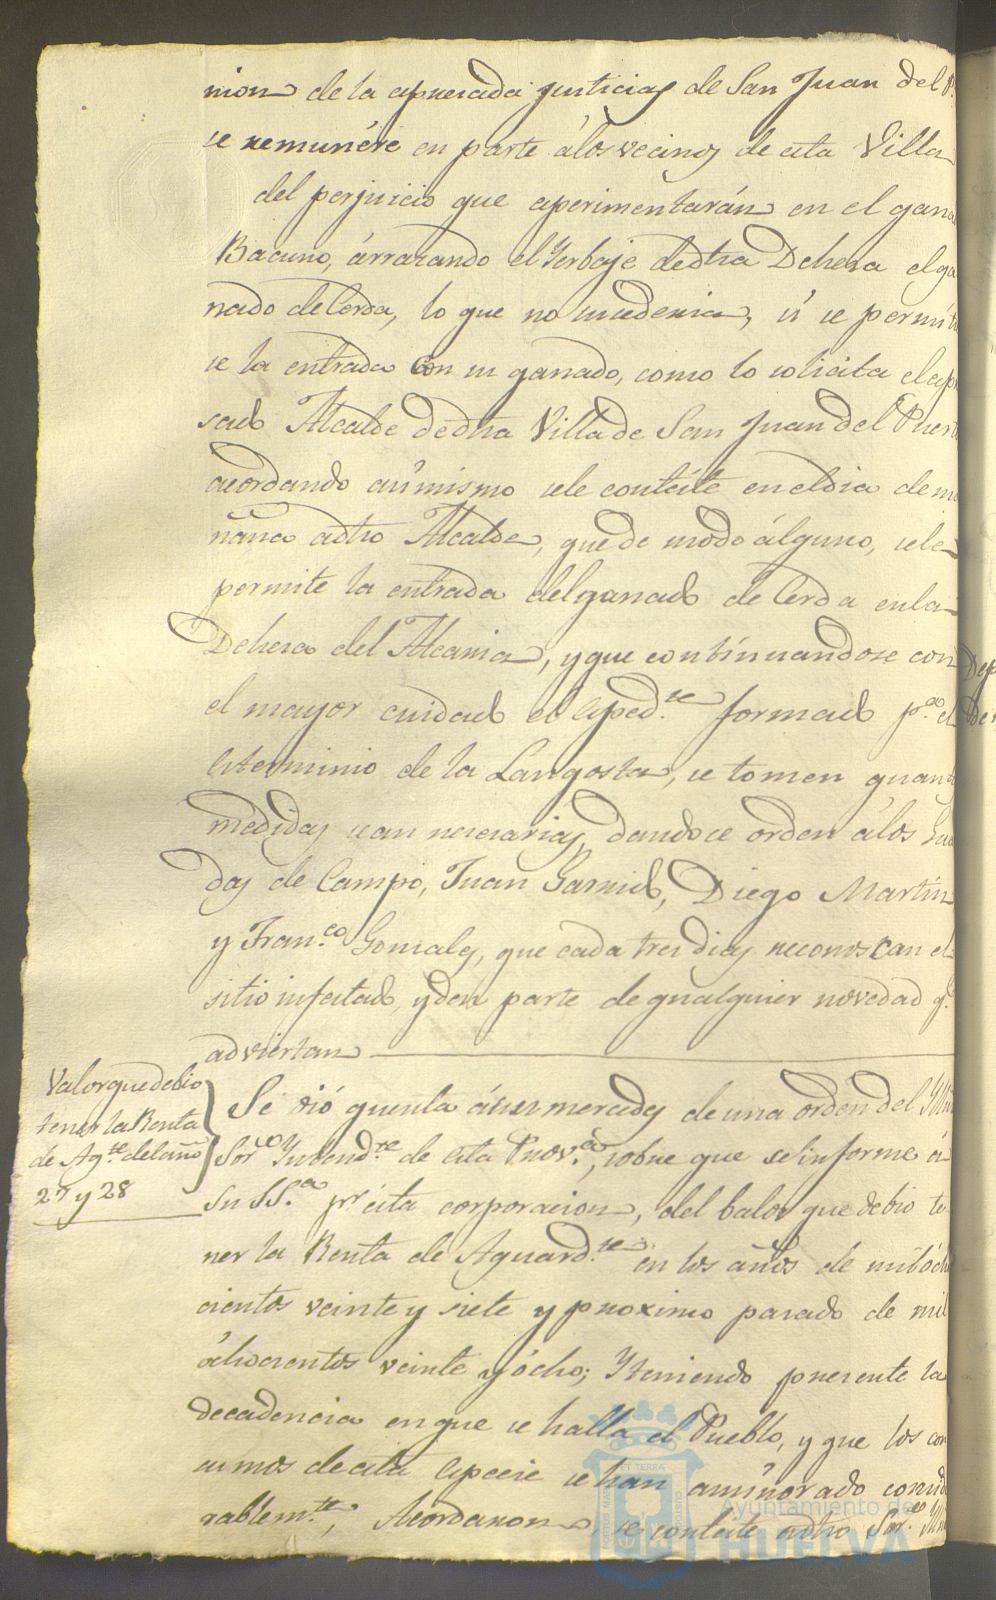 nion de la apresada justicia de San Juan del P.
se remunére en parte álos vecinos de esta Villa
del perjuicio que esperimentarán en el gana
Bacuno, árrazando el Yerbaje dedha Dehesa elga
nado deCerda, lo que no sucederia, si se permiti
se la entrada con su ganado, como lo solicita elespre
sado Alcalde dedha Villa de San Juan del Puerto
acordando asímismo sele conteste eneldia dema
ñana adho Alcalde, que de modo álguno, sele
permite la entrada delganado de Cerda enla
Dehesa del Alcaria, y que continuandose con
el mayor cuidado el Esped.te formado p.a el
Esterminio de la Langosta, se tomen quant
medidas sean necesarias, dandose orden álos Gua
das de Campo, Juan Garrido, Diego Martin
y Fran.co Gonsales, que cada tres dias reconoscan el
sitio infestado, yden parte de qualquier novedad q.e
adviertan
Valorquedebio
tener la Renta
de Ag.te delaño
27 y 28
Se dió quenta ásus mercedes de una orden del Yll
Sor Yntend.te de esta Prov.a, sobre que se informe á
Su SS.a p.r ésta corporacion, del balor que debio te
ner la Renta de Aguard.te en los años de mil óch
cientos veinte y siete y proximo pasado de mil
óchocientos veinte y ócho; Yteniendo presente la
decadencia en que se halla el Pueblo, y que los con
sumos de esta especie se han aminorado consid
rablem.te, Acordaron se conteste adho Sor.
ET TERRAE CUSTODIA
PORTUS MARIS
Ayuntamiento de
HUELVA